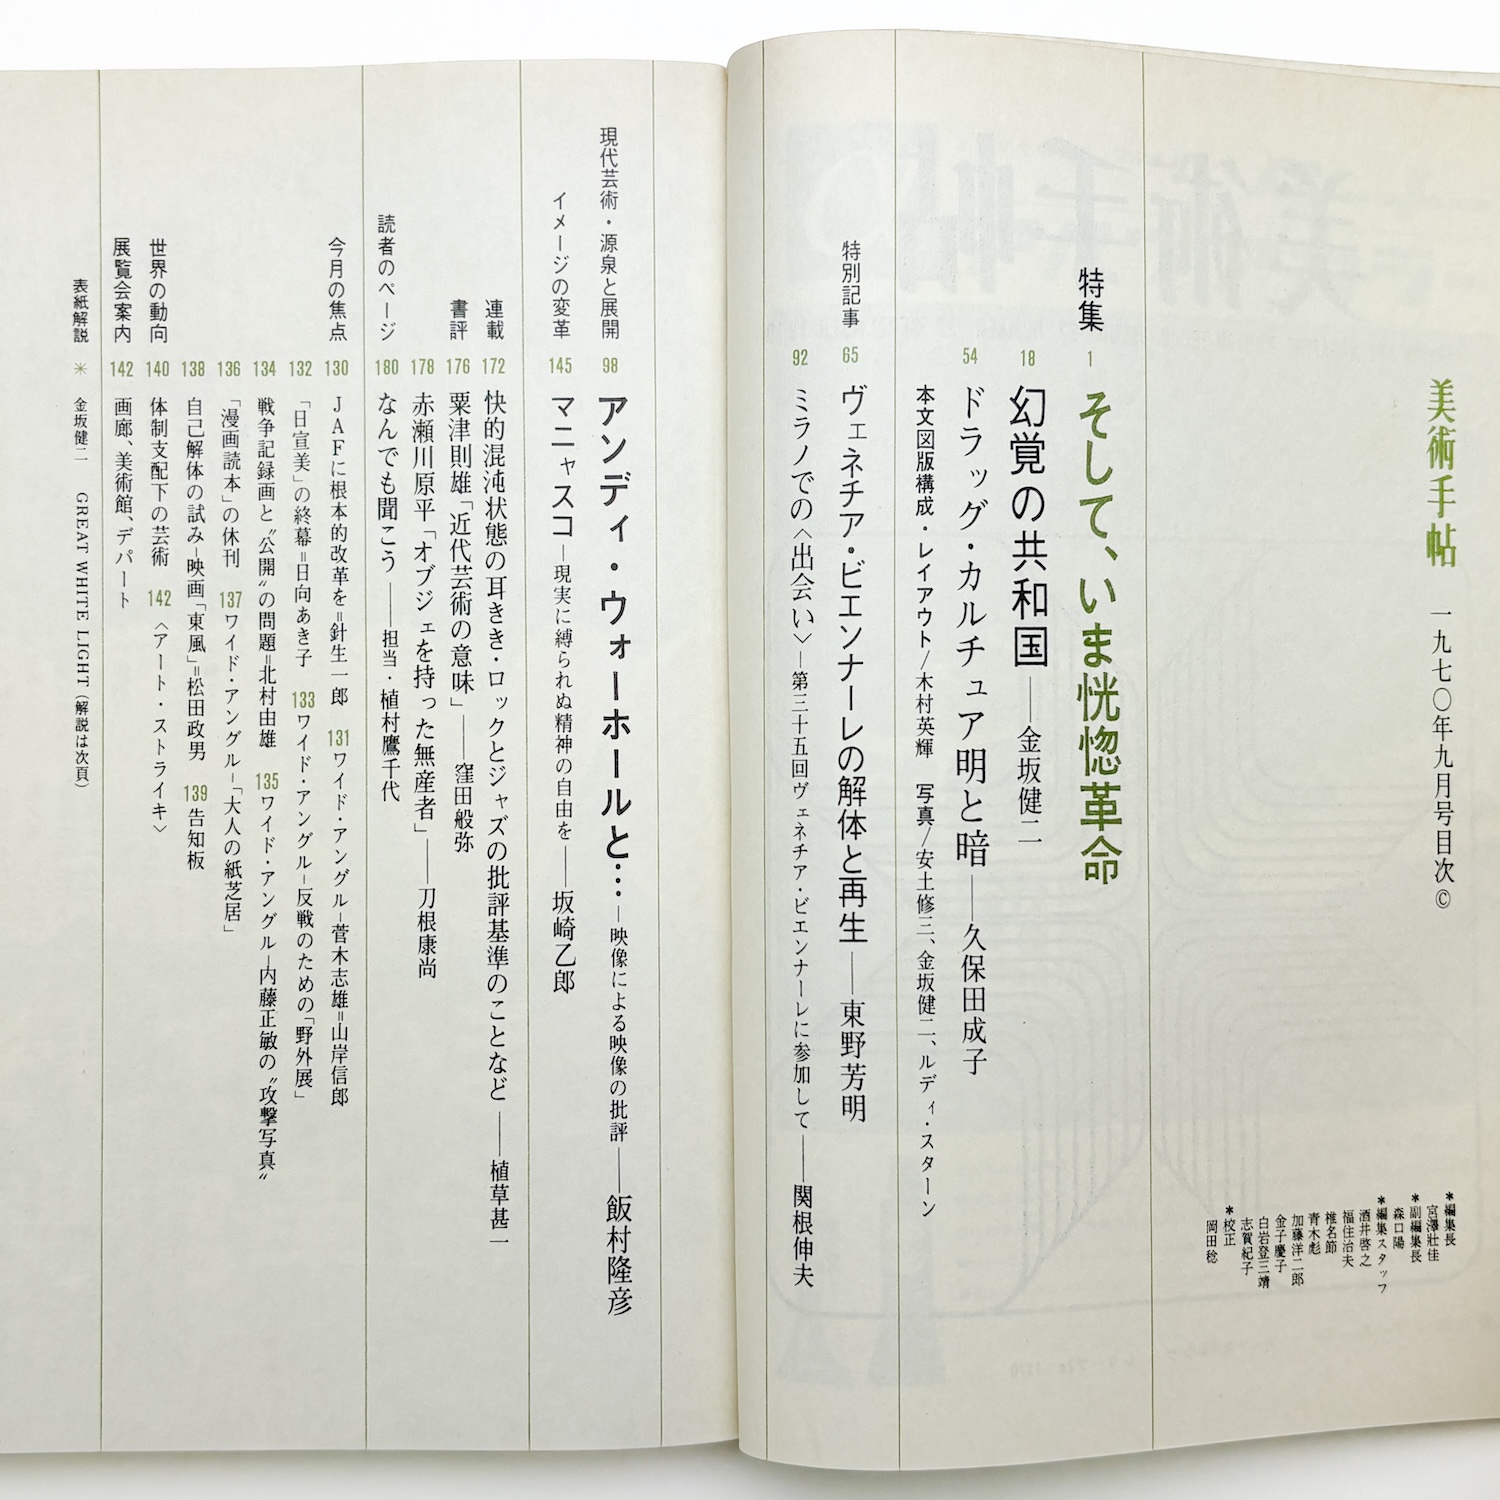 美術手帖 一九七〇年九月号目次©
*編集長
宮澤壯佳
*副編集長
森口陽
*編集スタッフ
酒井啓之
福住治夫
椎名節
青木彪
加藤洋二郎
金子慶子
白岩登三靖
志賀紀子
*校正
岡田稔
特集 1 そして、いま恍惚革命
18 幻覚の共和国——金坂健二
54 ドラッグ・カルチュア明と暗——久保田成子
本文図版構成・レイアウト/木村英輝 写真/安土修三、金坂健二、ルディ・スターン
特別記事 65 ヴェネチア・ビエンナーレの解体と再生——東野芳明
92 ミラノでの〈出会い〉—第三十五回ヴェネチア・ビエンナーレに参加して——関根伸夫
現代芸術・源泉と展開 98 アンディ・ウォーホールと…—映像による映像の批評——飯村隆彦
イメージの変革 145 マニャスコ—現実に縛られぬ精神の自由を——坂崎乙郎
連載 172 快的混沌状態の耳きき・ロックとジャズの批評基準のことなど——植草甚一
書評 176 粟津則雄「近代芸術の意味」——窪田般弥
178 赤瀬川原平「オブジェを持った無産者」——刀根康尚
読者のページ 180 なんでも聞こう——担当・植村鷹千代
今月の焦点 130 JAFに根本的改革を=針生一郎 131 ワイド・アングル—菅木志雄=山岸信郎
132 「日宣美」の終幕=日向あき子 133 ワイド・アングル—反戦のための「野外展」
134 戦争記録画と〝公開〟の問題=北村由雄 135 ワイド・アングル—内藤正敏の〝攻撃写真〟
136 「漫画読本」の休刊 137 ワイド・アングル—「大人の紙芝居」
138 自己解体の試み—映画「東風」=松田政男 139 告知板
世界の動向 140 体制支配下の芸術 142 〈アート・ストライキ〉
展覧会案内 142 画廊、美術館、デパート
表紙解説 * 金坂健二 GREAT WHITE LIGHT(解説は次頁)